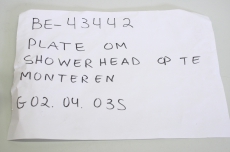 BE-43442
PLATE OM
SHOWERHEAD OP TE
MONTEREN
G02.04.03S